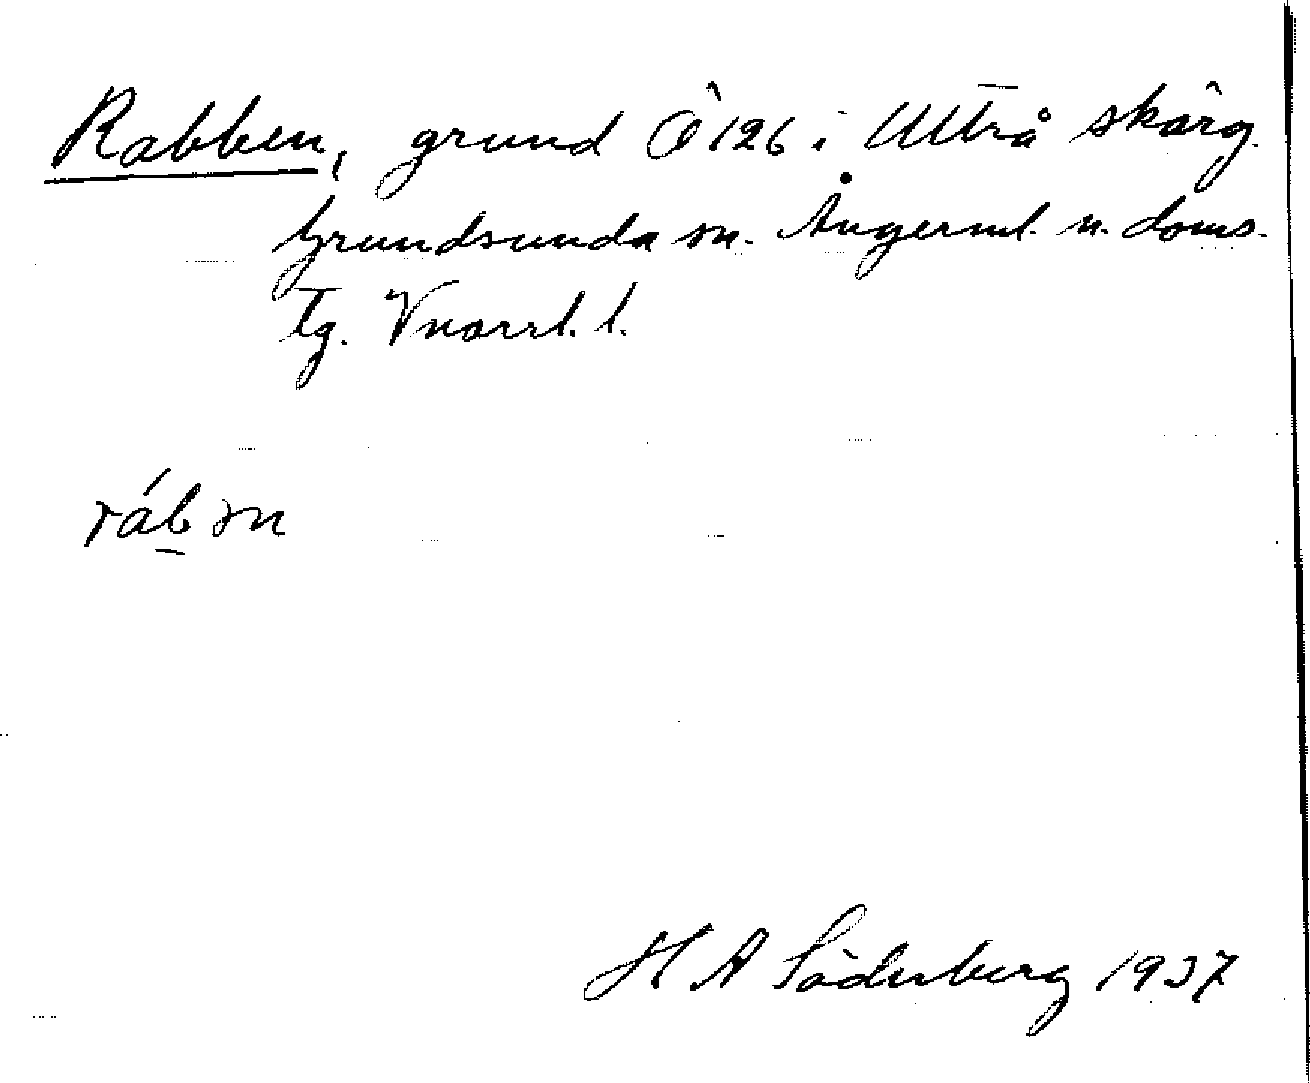 Rabben, grund Ö 126 i Ulvrå skärg.
Grundsunda sn. Ångerml. n. doms.
tg. Vnorrl. l.
ráb̲ən
H A Söderberg 1937